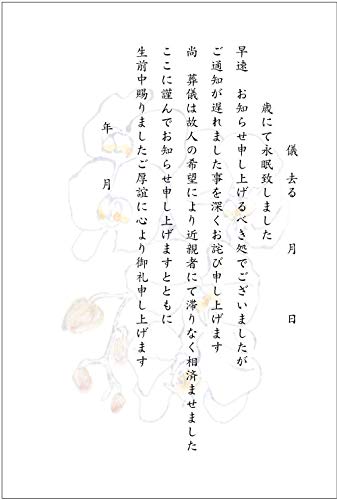 儀 去る 月 日
歳にて永眠致しました
早速 お知らせ申し上げるべき処でございましたが
ご通知が遅れました事を深くお詫び申し上げます
尚 葬儀は故人の希望により近親者にて滞りなく相済ませました
ここに謹んでお知らせ申し上げますとともに
生前中賜りましたご厚誼に心より御礼申し上げます
年 月